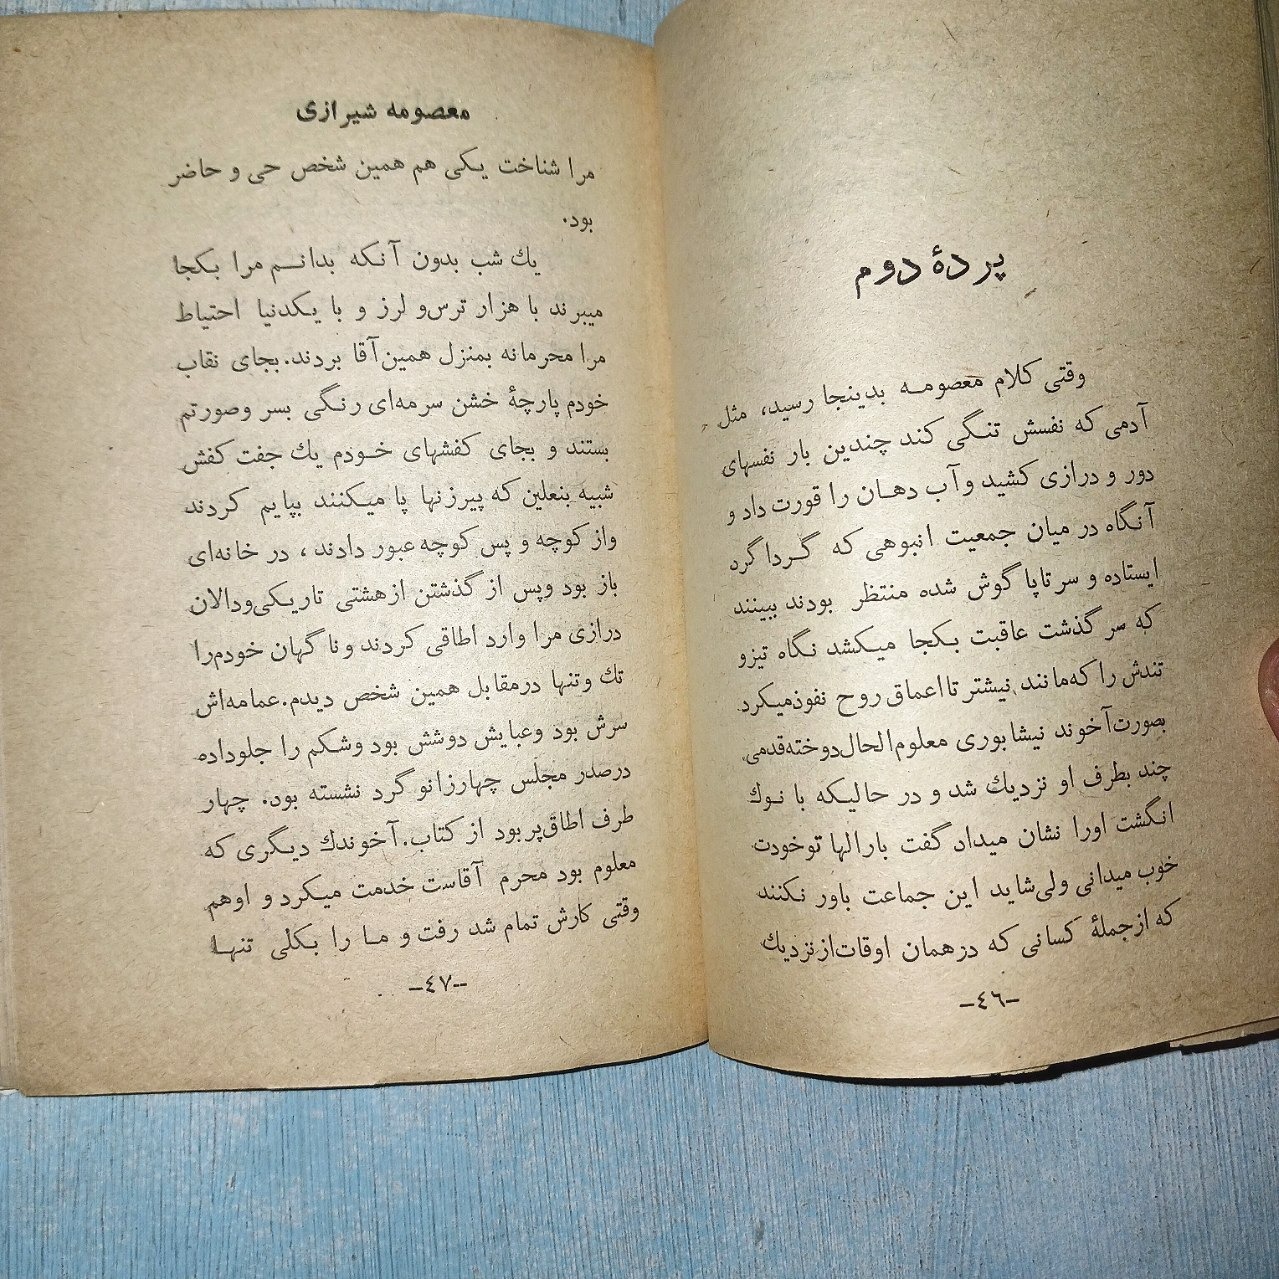 پردهٔ دوم
وقتی کلام معصومه بدینجا رسید، مثل
آدمی که نفسش تنگی کند چندین بار نفسهای
دور و درازی کشید و آب دهان را قورت داد و
آنگاه در میان جمعیت انبوهی که گرداگرد
ایستاده و سرتاپا گوش شده منتظر بودند ببینند
که سرگذشت عاقبت بکجا میکشد نگاه تیز و
تندش را که مانند نیشتر تا اعماق روح نفوذ میکرد
بصورت آخوند نیشابوری معلوم الحال دوخته قدمی
چند بطرف او نزدیك شد و در حالیکه با نوك
انگشت اورا نشان میداد گفت بارالها تو خودت
خوب میدانی ولی شاید این جماعت باور نکنند
که از جملهٔ کسانی که در همان اوقات از نزدیك
-٤٦-
معصومه شیرازی
مرا شناخت یکی هم همین شخص حی و حاضر
بود.
یك شب بدون آنکه بدانم مرا بکجا
میبرند با هزار ترس و لرز و با یکدنیا احتیاط
مرا محرمانه بمنزل همین آقا بردند. بجای نقاب
خودم پارچهٔ خشن سرمه‌ای رنگی بسر وصورتم
بستند و بجای کفشهای خودم یك جفت کفش
شبیه بنعلین که پیرزنها پا میکنند بپایم کردند
واز کوچه و پس کوچه عبور دادند، در خانه‌ای
باز بود وپس از گذشتن از هشتی تاریکی ودالان
درازی مرا وارد اطاقی کردند و ناگهان خودم را
تك وتنها در مقابل همین شخص دیدم. عمامه‌اش
سرش بود وعبایش دوشش بود وشکم را جلو داده
در صدر مجلس چهار زانو گرد نشسته بود. چهار
طرف اطاق پر بود از کتاب. آخوندك دیگری که
معلوم بود محرم آقاست خدمت میکرد و اوهم
وقتی کارش تمام شد رفت و ما را بکلی تنها
-٤٧-